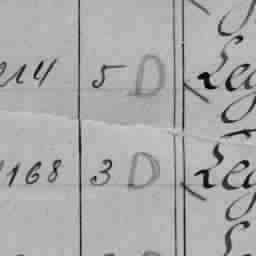 214 5 D Leg
168 3 D Leg